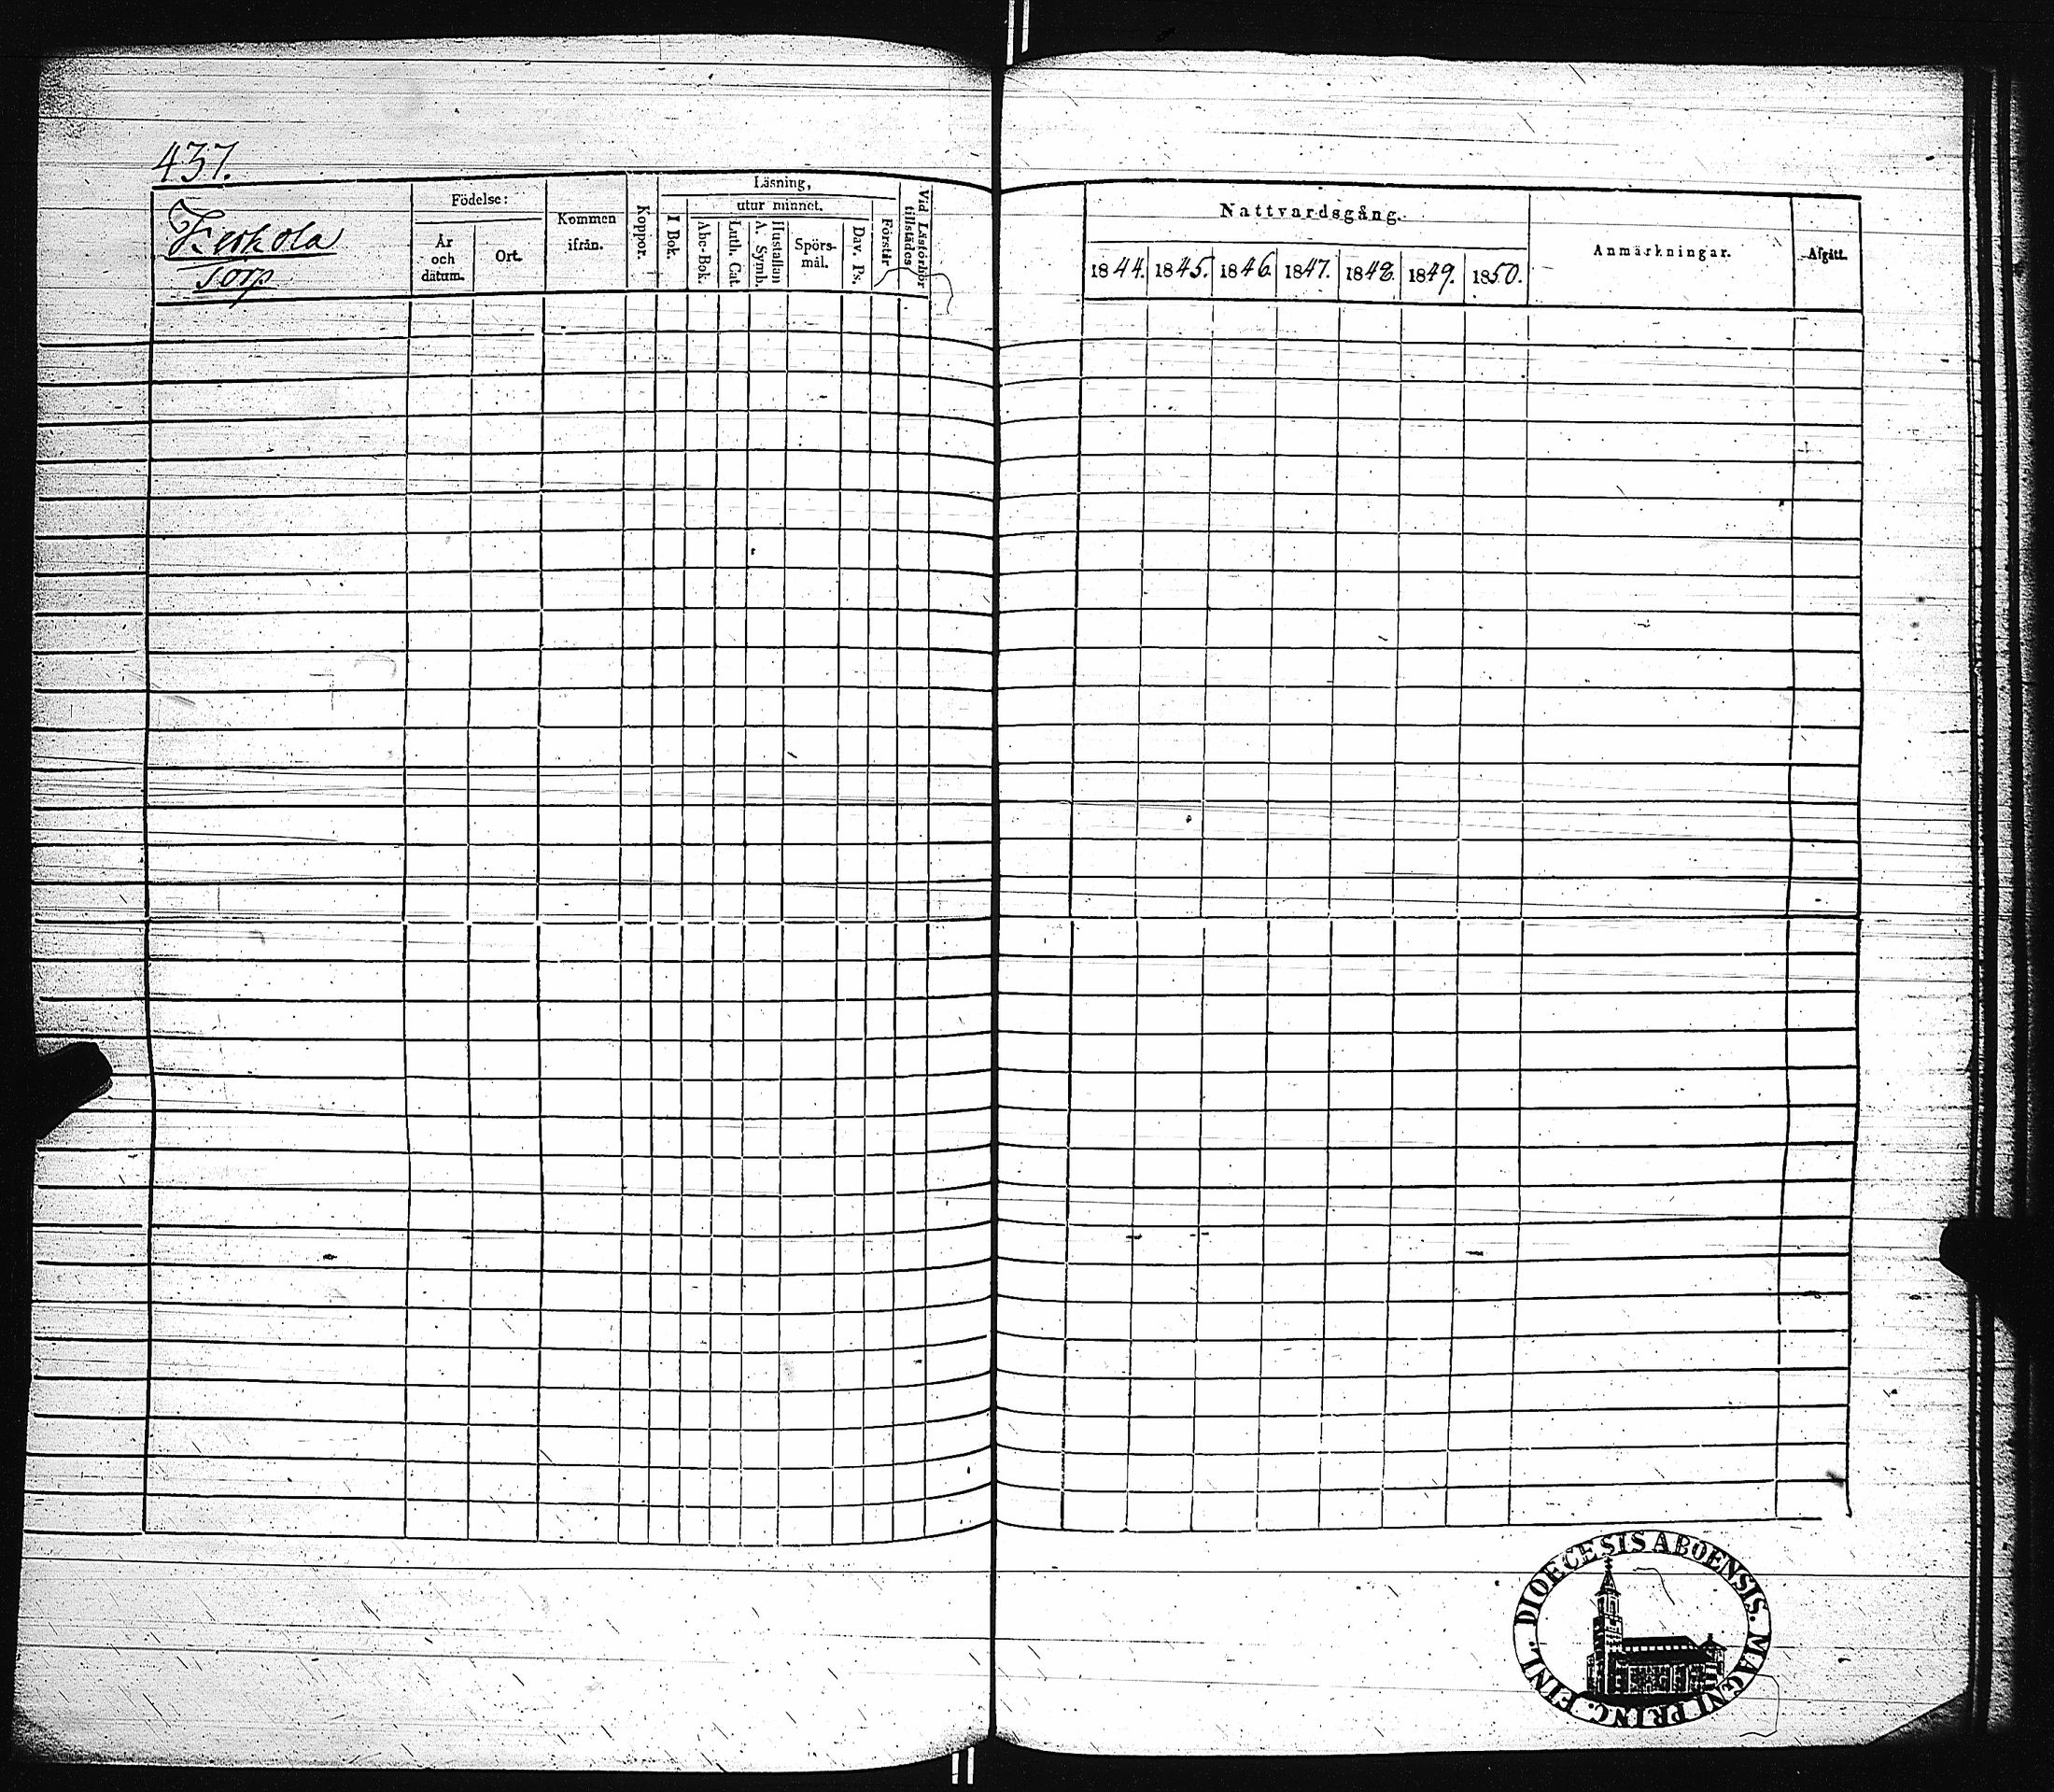 437.
Kerkola
Torp
Födelse:
År och dátum.
Ort.
Kommen ifrån.
Koppor.
Läsning,
I Bok.
utur minnet.
Abc-Bok.
Luth. Cat.
Hustaflan A. Symb.
Spörs-mål.
Dav. Ps.
Förstår
Vid Läsförhör tillstädes
Nattvardsgång.
1844. 1845. 1846. 1847. 1848. 1849. 1850.
Anmärkningar.
Afgått.
DIOECESIS ABOENSIS. MAGNI PRINC. FINL.